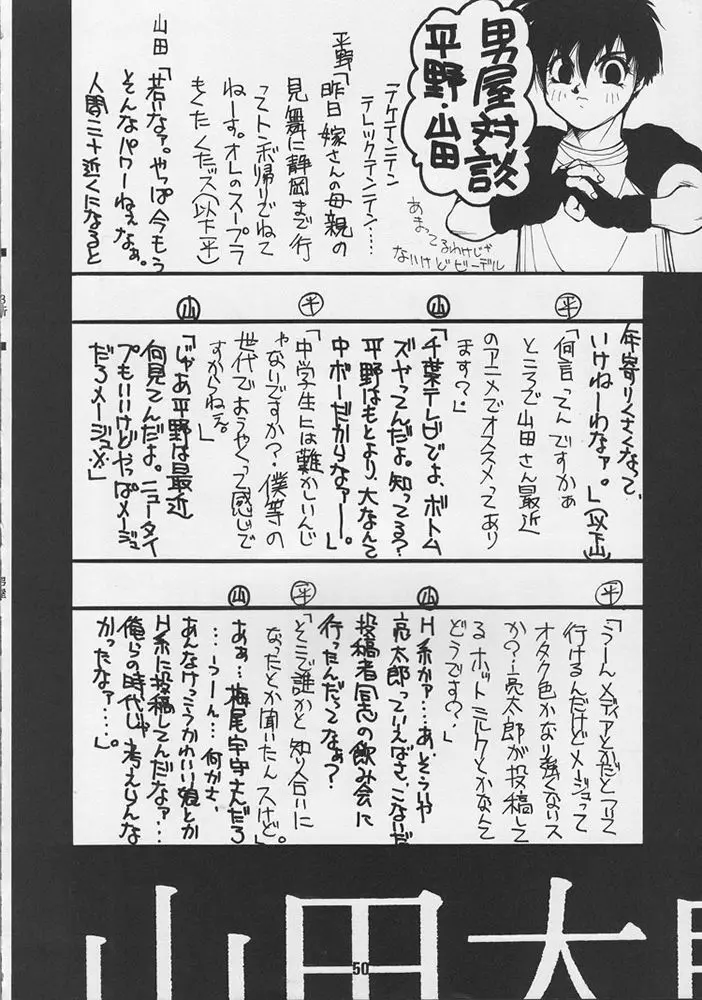 男屋対談
平野・山田
あまってるわけじゃ
ないけどビーデル
テケテンテン
テレックテンテン…
平野「昨日嫁さんの母親の
見舞に静岡まで行
ってトンボ帰りでねて
ねーす。オレのスープラ
もくたくたッス(以下平)
山田「若いなァ。やっぱ今もう
そんなパワーねぇなぁ。
人間三十近くになると
年寄りくさくなって、
いけねーわなァ。」(以下山)
平
「何言ってんですかぁ
ところで山田さん最近
のアニメでオススメってあり
ます?」
山
「千葉テレビでよ、ボトム
ズやってんだよ。知ってる?
平野はもとより、大なんて
中ボーだからなァー。」
平
「中学生には難かしいんじ
ゃないですか?僕等の
世代でようやくって感じで
すからねぇ。」
山
「じゃあ平野は最近
何見てんだよ。ニュータイ
プもいいけどやっぱメージュ
だろメージュ。」
平
「うーんメディアとかだとついて
行けるんだけどメージュって
オタク色かなり強くないス
か?…亮太郎が投稿して
るホットミルクとかなんて
どうです?」
山
H系かァ…。あ、そういや
亮太郎っていえばさ、こないだ
投稿者同志の飲み会に
行ったんだってなぁ?
平
「そこで誰かと知り合いに
なったとか聞いたんスけど。」
山
あぁ…梅尾宇守さんだろ
…うーん…何かさ、
あんなけっこうかわいい娘とか
H系に投稿してんだなァ…
俺らの時代じゃ考えらんな
かったなァ…。」
山田太
50